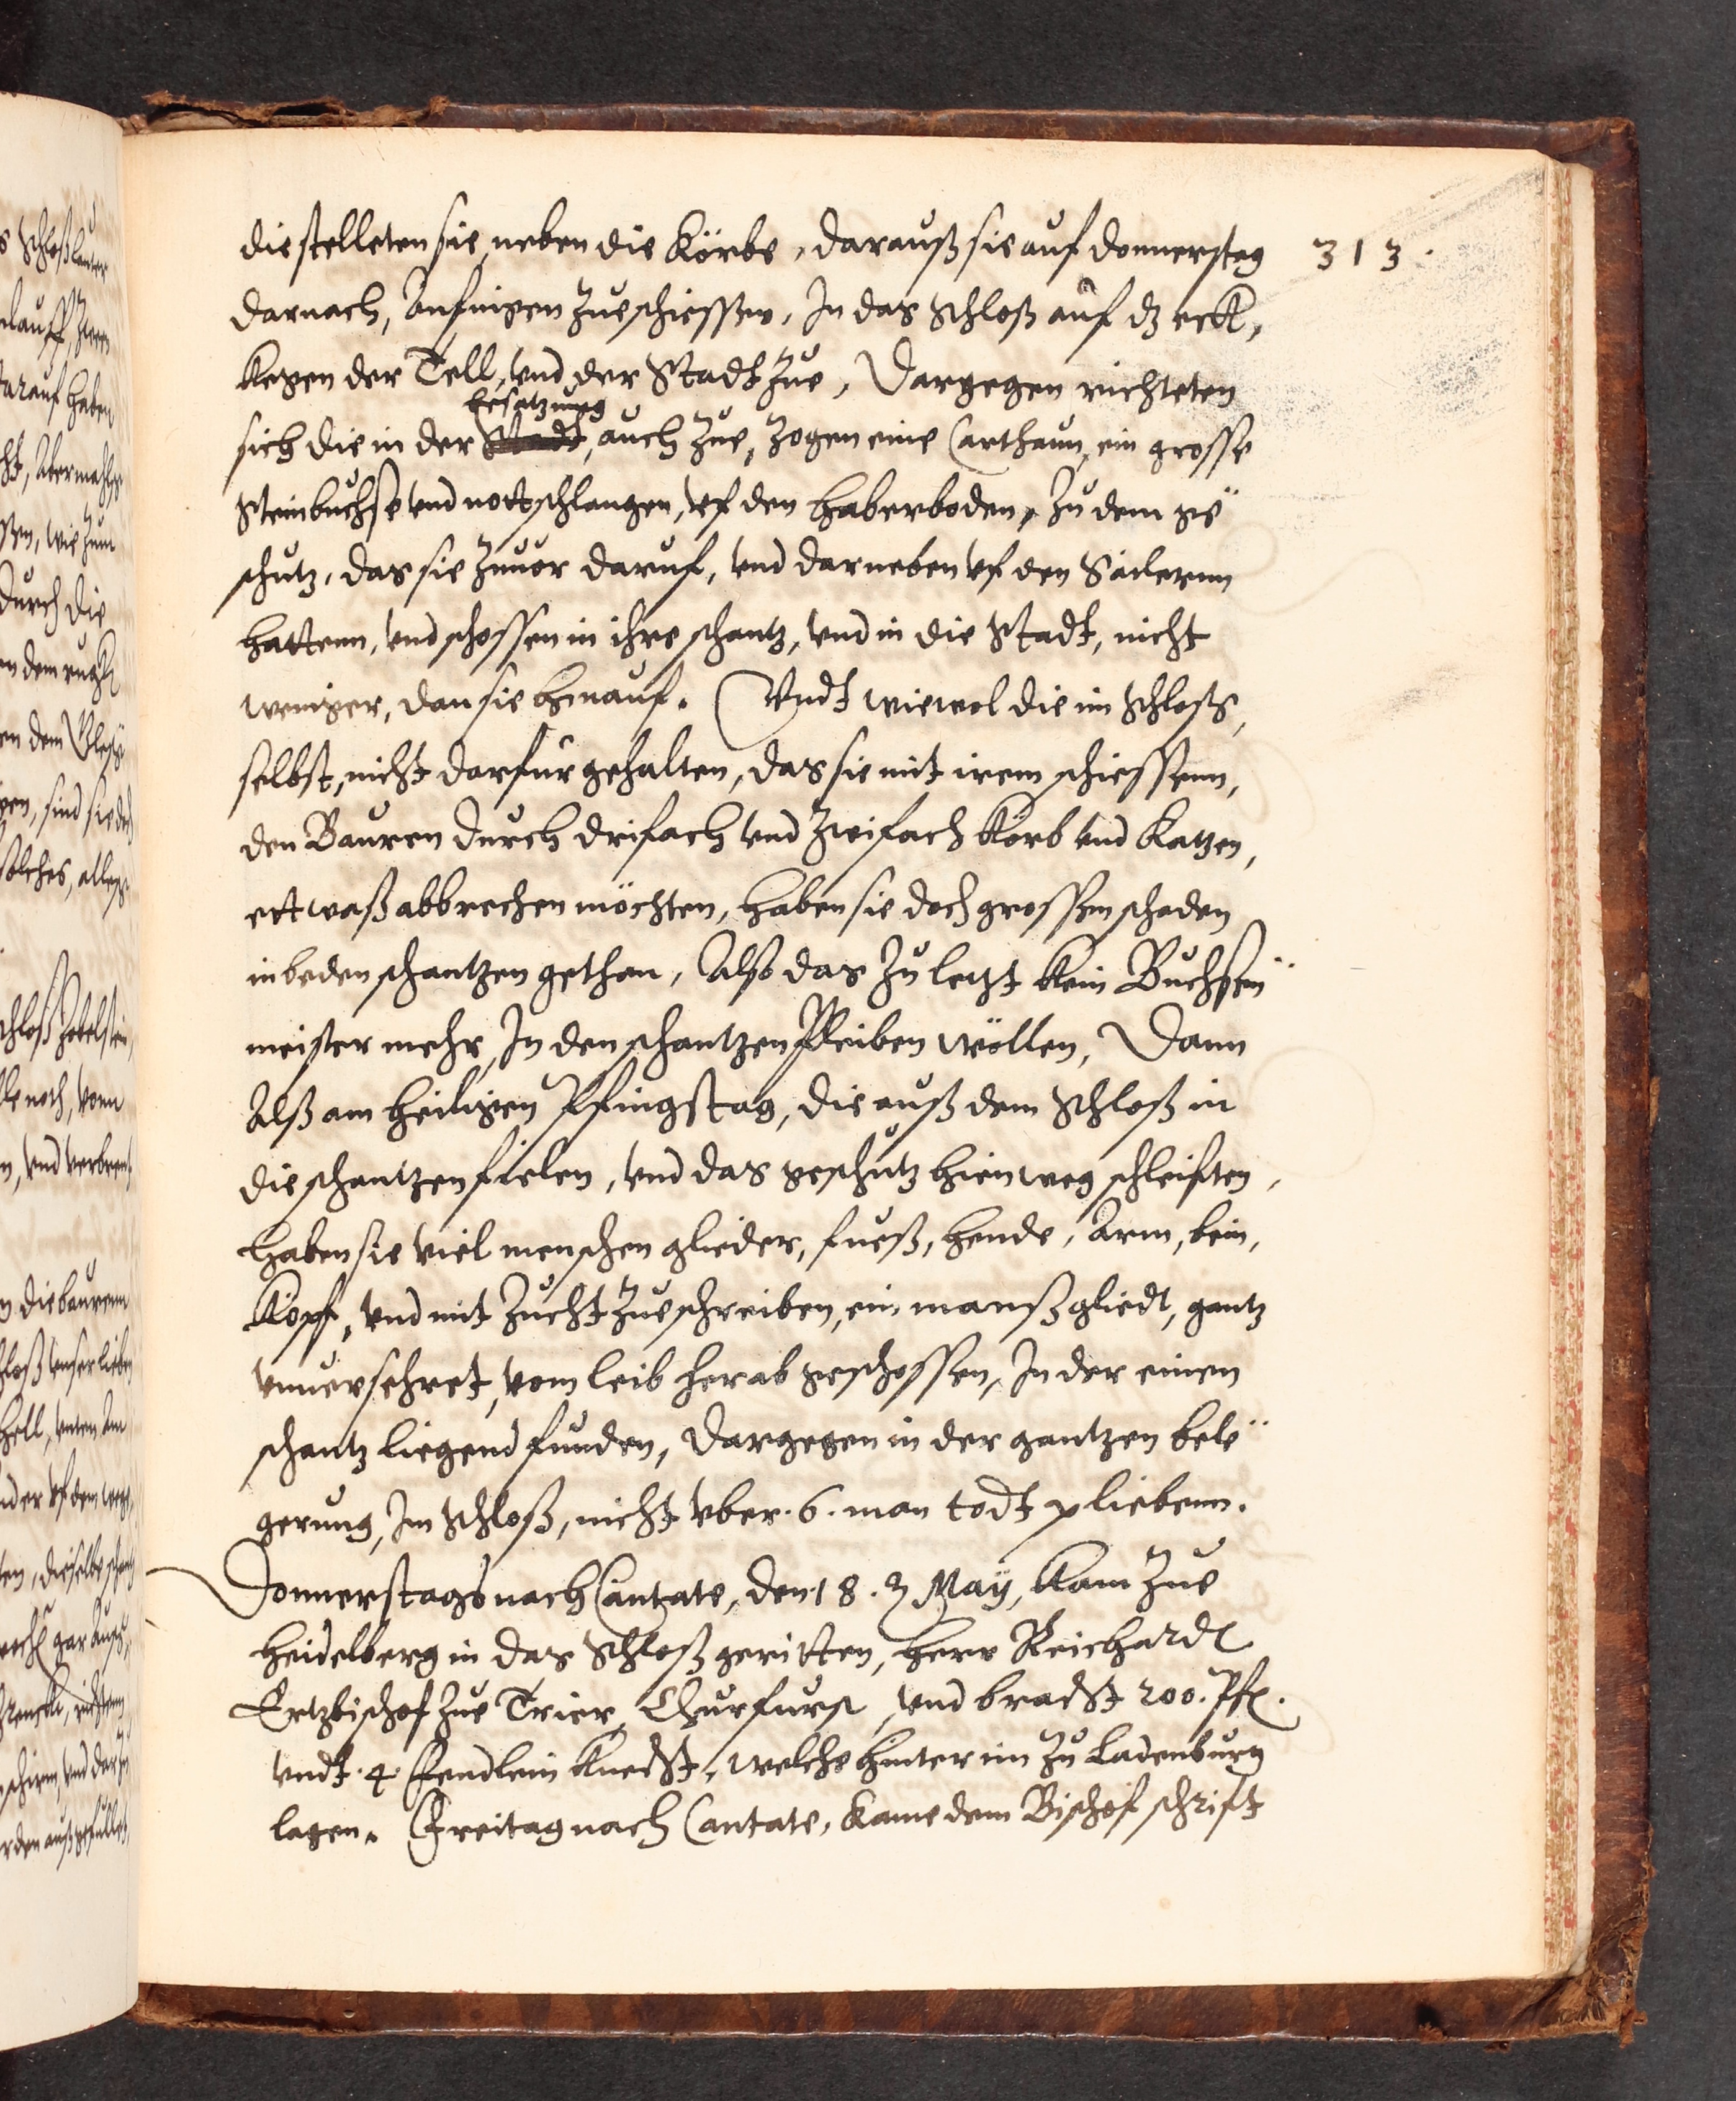 die stelleten sie, neben die Körbe, darauß sie auf donnerstag
313.
darnach, Anfingen zue schiessen, In das Schloß auf dz eck,
kegen der Tell, vnd der Stadt zue, Dargegen richteten
Besatzung
sich die in der Stadt, auch zue, zogen eine Carthaun, ein grosse
Steinbuchse vnd nottschlangen, vf den haberboden, zu dem ge¨
schutz, das sie zuuor daruf, vnd darneben vf den
hattenn, vnd schossen in ihre schantz, vnd in die Stadt, nicht
weniger, dan sie hinauf. Vndt wiewol die im Schloß,
selbst, nicht darfur gehalten, das sie mit irem schiessenn,
den Bauren durch drifach vnd zwifach Körb vnd Katzen,
ettwaß abbrechen möchten, haben sie doch grossen schaden
in beden schantzen gethan, Also das zu letzt kein Buchsen¨
meister mehr, In den schantzen Pleiben wöllen, Dann
Alß am heiligen Pfingstag, die auß dem Schloß in
die schantzen fielen, vnd das geschutz hienweg schleiften,
haben sie viel menschen glieder, fueß, hende, Arm, bein,
Köpf, vnd mit zucht zue schreiben, ein manß gliedt, gantz
vnuersehret, vom leib herab geschossen, In der einen
schantz liegend funden, Dargegen in der gantzen bele¨
gerung, Im Schloß, nicht vber .6. man todt pliebenn.
Donnerstags nach Cantate, den 18. Maÿ, kam zue
Heidelberg in das Schloß geritten, herr Reichardt
Ertzbischof zue Trier, Churfurst, vnd bracht 200. Pf.
vndt .4. Fendlein knecht, welche hinter im zu Ladenburg
lagen. Freitag nach Cantate, kame dem Bischof schrift